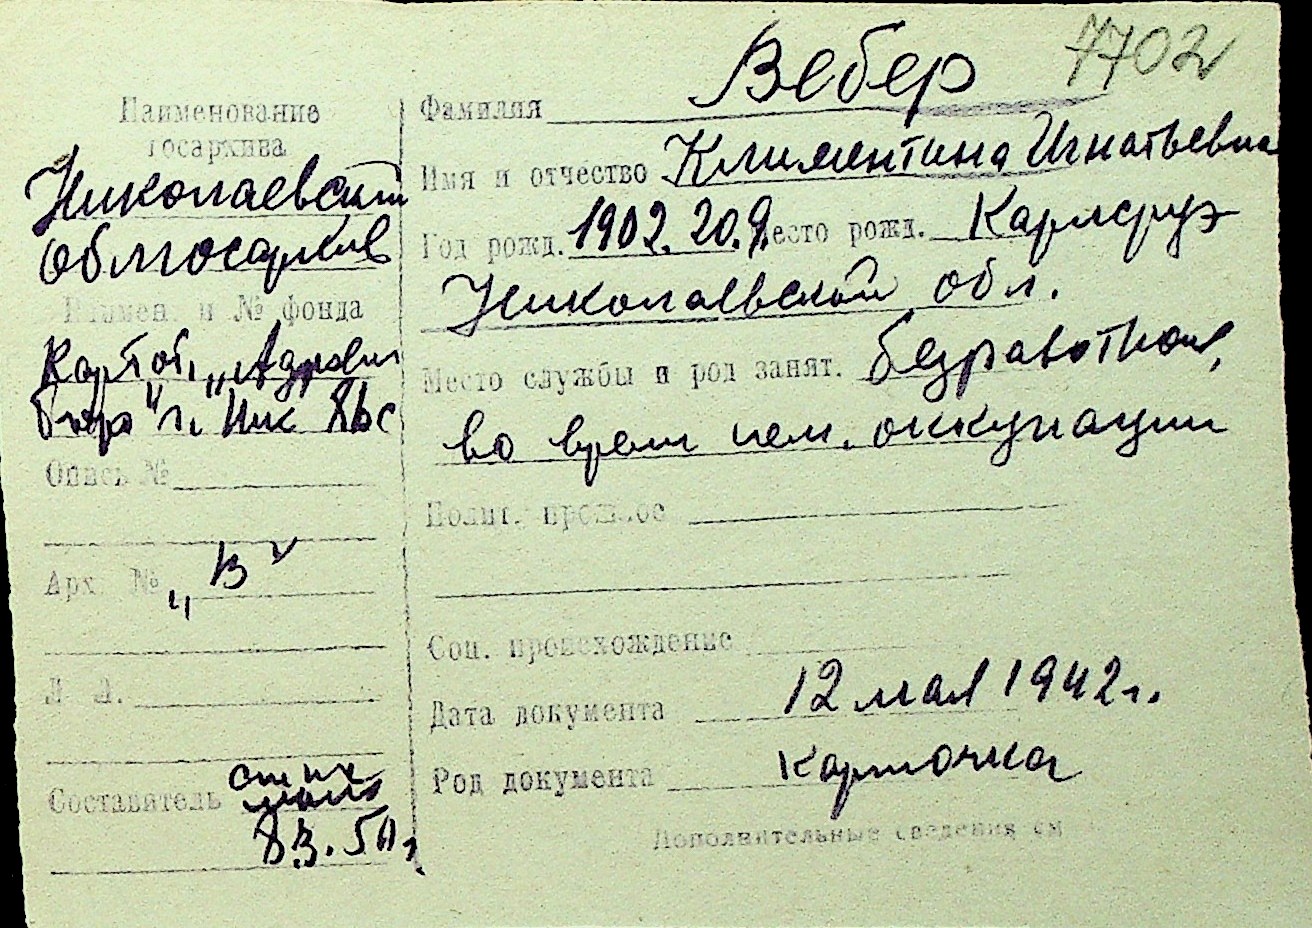 7702
Наименование
госархива
Николаевский
Облгосархив
Наимен. и № фонда
Картот. „Адресн
бюро" г. Ник
Опись №
Арх. № „В"
Л. Д.
Составитель
8.3.50 г.
Фамилия Вебер
Имя и отчество Климентина Игнатьевна
Год рожд. 1902. 20.9. Место рожд. Карлсруэ
Николаевской обл.
Место службы и род занят. безработная,
во время нем. оккупации
Полит. прошлое
Соц. происхождение
Дата документа 12 мая 1942 г.
Род документа карточка
Дополнительные сведения см